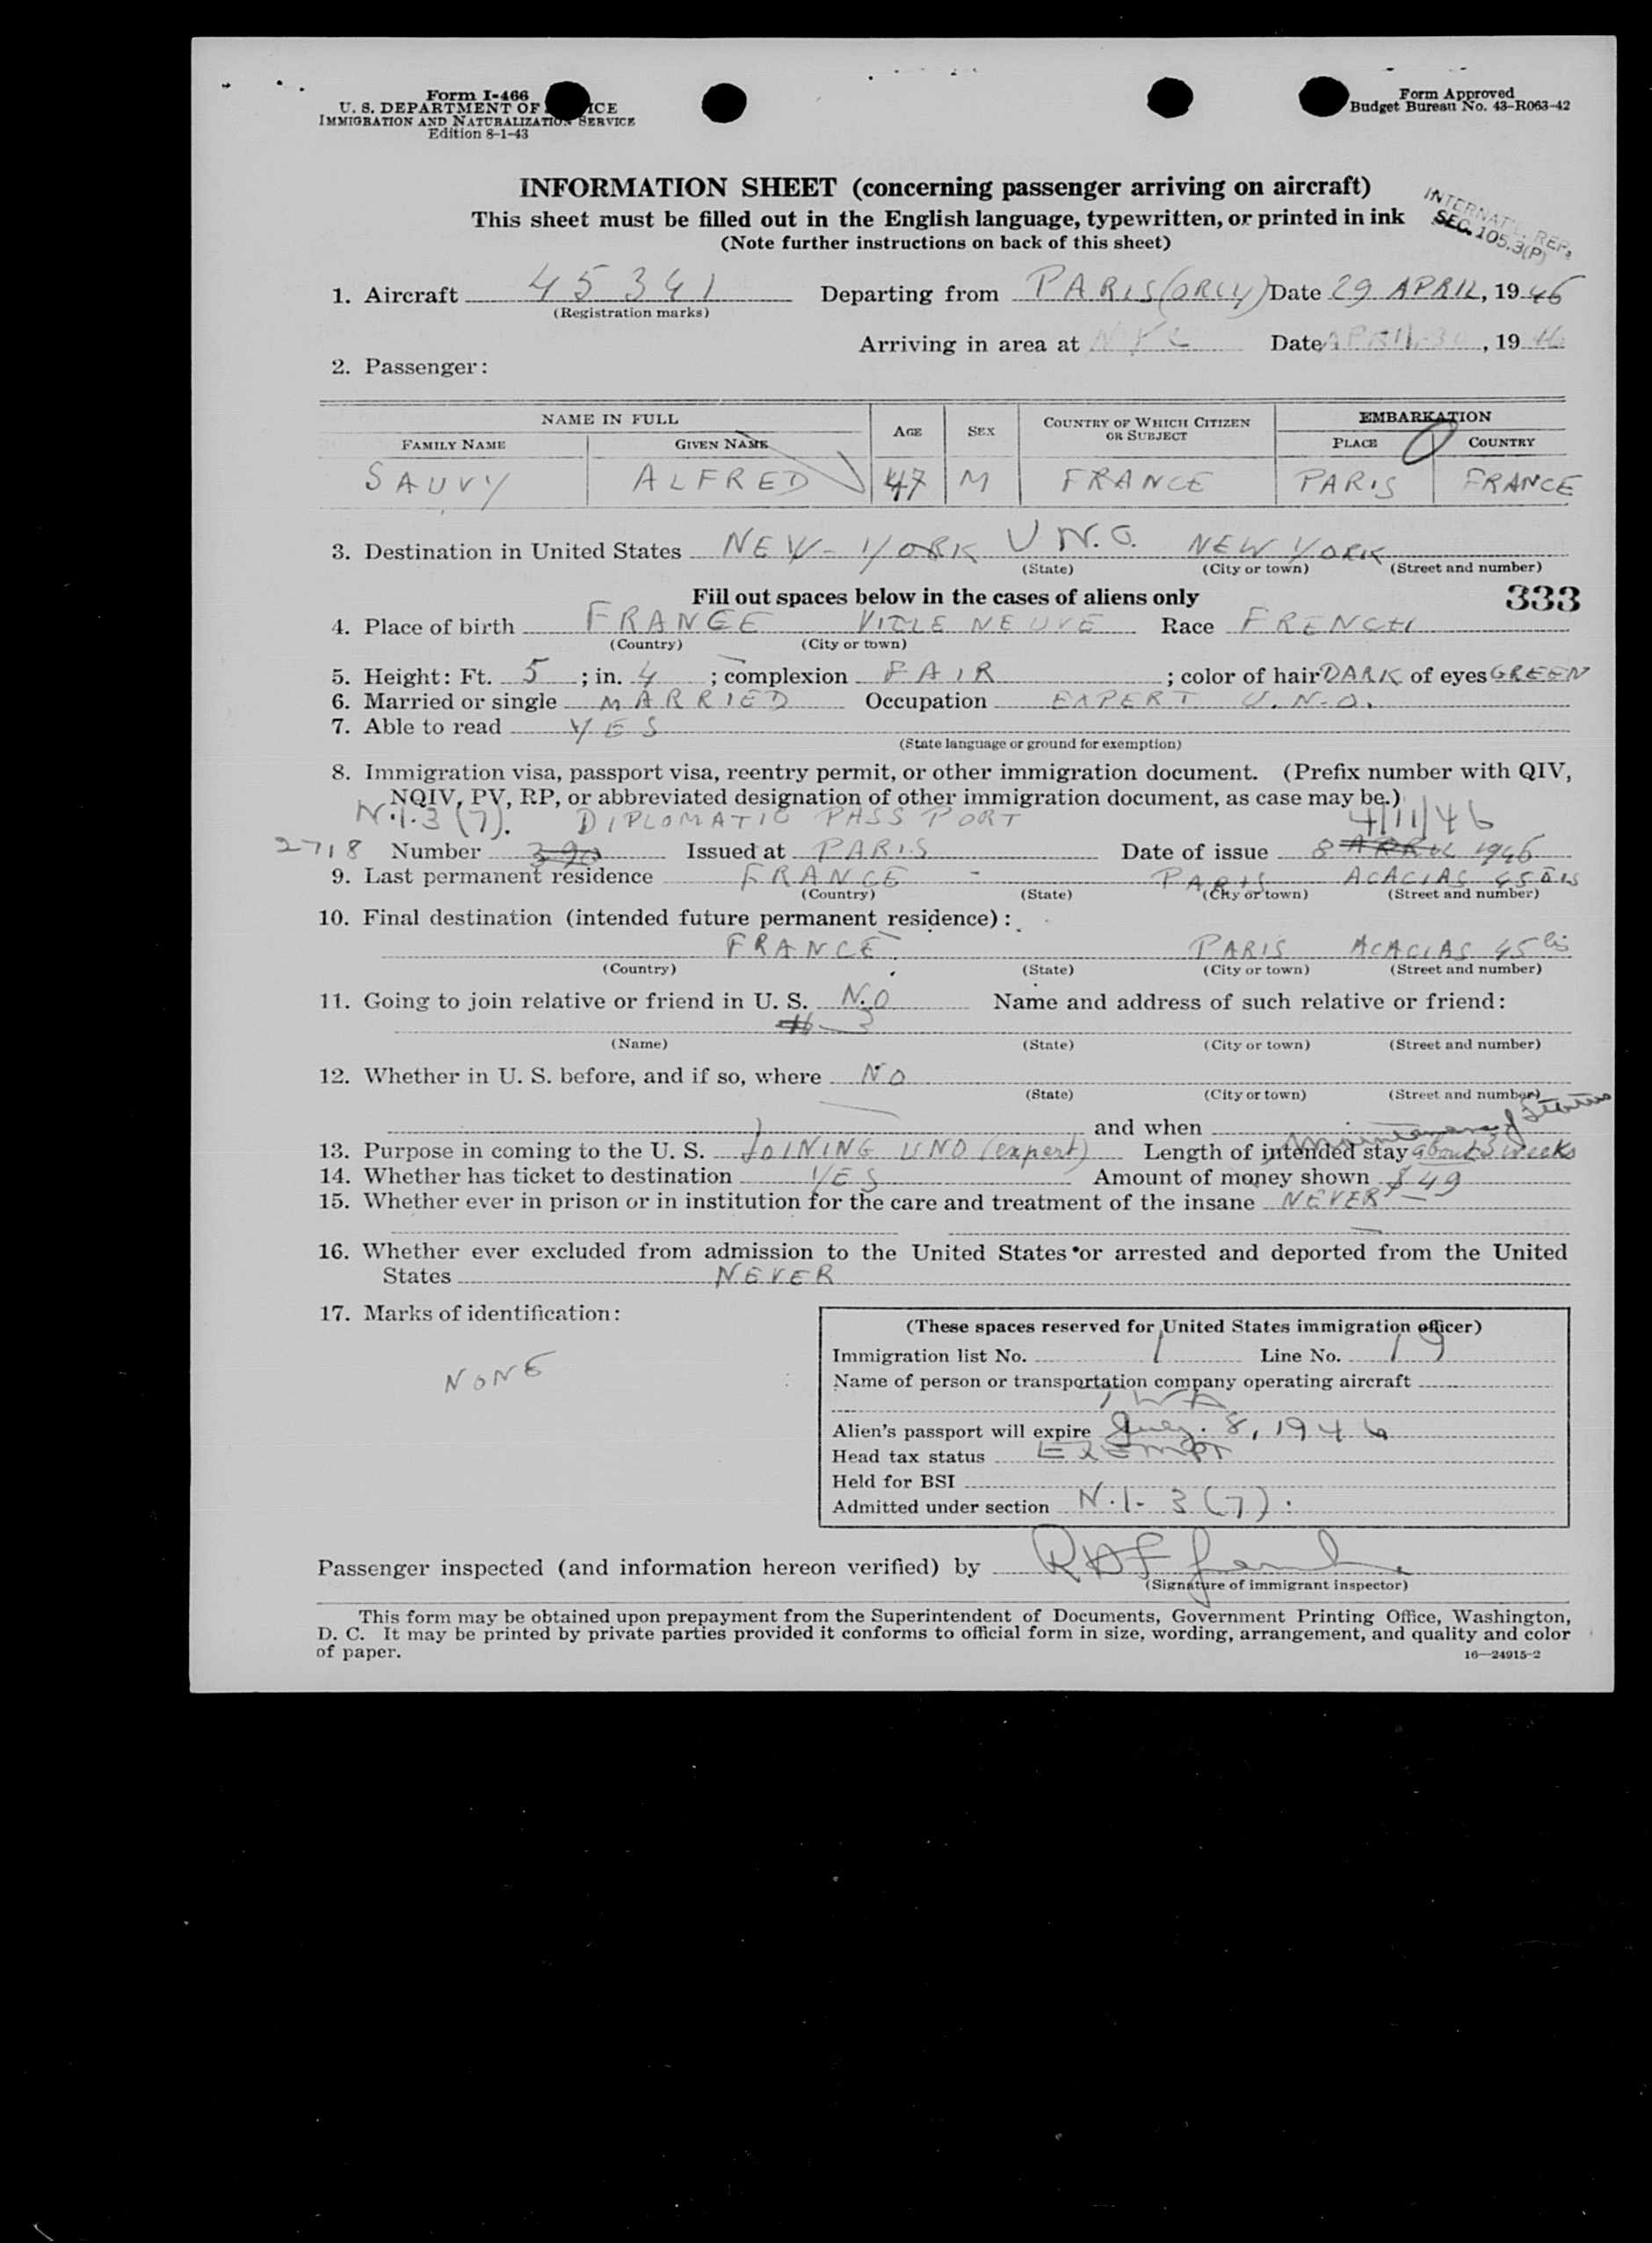 Form I-466
U. S. DEPARTMENT OF ICE
IMMIGRATION AND NATURALIZATION SERVICE
Edition 8-1-43
Form Approved
Budget Bureau No. 43-R063-42
INFORMATION SHEET (concerning passenger arriving on aircraft)
This sheet must be filled out in the English language, typewritten, or printed in ink
(Note further instructions on back of this sheet)
INTERNAT'L. REP.
SEC. 105.3(P)
1. Aircraft 45341 Departing from PARIS (ORLY) Date 29 APRIL, 1946
(Registration marks)
Arriving in area at NYC Date APRIL 30, 1946
2. Passenger:
NAME IN FULL AGE SEX COUNTRY OF WHICH CITIZEN OR SUBJECT EMBARKATION
FAMILY NAME GIVEN NAME PLACE COUNTRY
SAUVY ALFRED 47 M FRANCE PARIS FRANCE
3. Destination in United States NEW-YORK U.N.O. NEW YORK
(State) (City or town) (Street and number)
Fill out spaces below in the cases of aliens only 333
4. Place of birth FRANCE VILLE NEUVE Race FRENCH
(Country) (City or town)
5. Height: Ft. 5; in. 4; complexion FAIR; color of hair DARK of eyes GREEN
6. Married or single MARRIED Occupation EXPERT U.N.O.
7. Able to read YES
(State language or ground for exemption)
8. Immigration visa, passport visa, reentry permit, or other immigration document. (Prefix number with QIV,
NQIV, PV, RP, or abbreviated designation of other immigration document, as case may be.)
N.I. 3 (7). DIPLOMATIC PASSPORT 4/11/46
2718 Number 390 Issued at PARIS Date of issue 8 APRIL 1946
9. Last permanent residence FRANCE - PARIS ACACIAS 45 BIS
(Country) (State) (City or town) (Street and number)
10. Final destination (intended future permanent residence):
FRANCE PARIS ACACIAS 45 bis
(Country) (State) (City or town) (Street and number)
11. Going to join relative or friend in U. S. NO Name and address of such relative or friend:
(Name) (State) (City or town) (Street and number)
12. Whether in U. S. before, and if so, where NO
(State) (City or town) (Street and number)
and when
Maintenance of Status
13. Purpose in coming to the U. S. JOINING UNO (expert) Length of intended stay about 3 weeks
14. Whether has ticket to destination YES Amount of money shown $ 49
15. Whether ever in prison or in institution for the care and treatment of the insane NEVER
16. Whether ever excluded from admission to the United States or arrested and deported from the United
States NEVER
17. Marks of identification:
NONE
(These spaces reserved for United States immigration officer)
Immigration list No. 1 Line No. 19
Name of person or transportation company operating aircraft
TWA
Alien's passport will expire July 8, 1946
Head tax status EXEMPT
Held for BSI
Admitted under section N.I. 3 (7).
Passenger inspected (and information hereon verified) by
(Signature of immigrant inspector)
This form may be obtained upon prepayment from the Superintendent of Documents, Government Printing Office, Washington,
D. C. It may be printed by private parties provided it conforms to official form in size, wording, arrangement, and quality and color
of paper.
16—24915-2